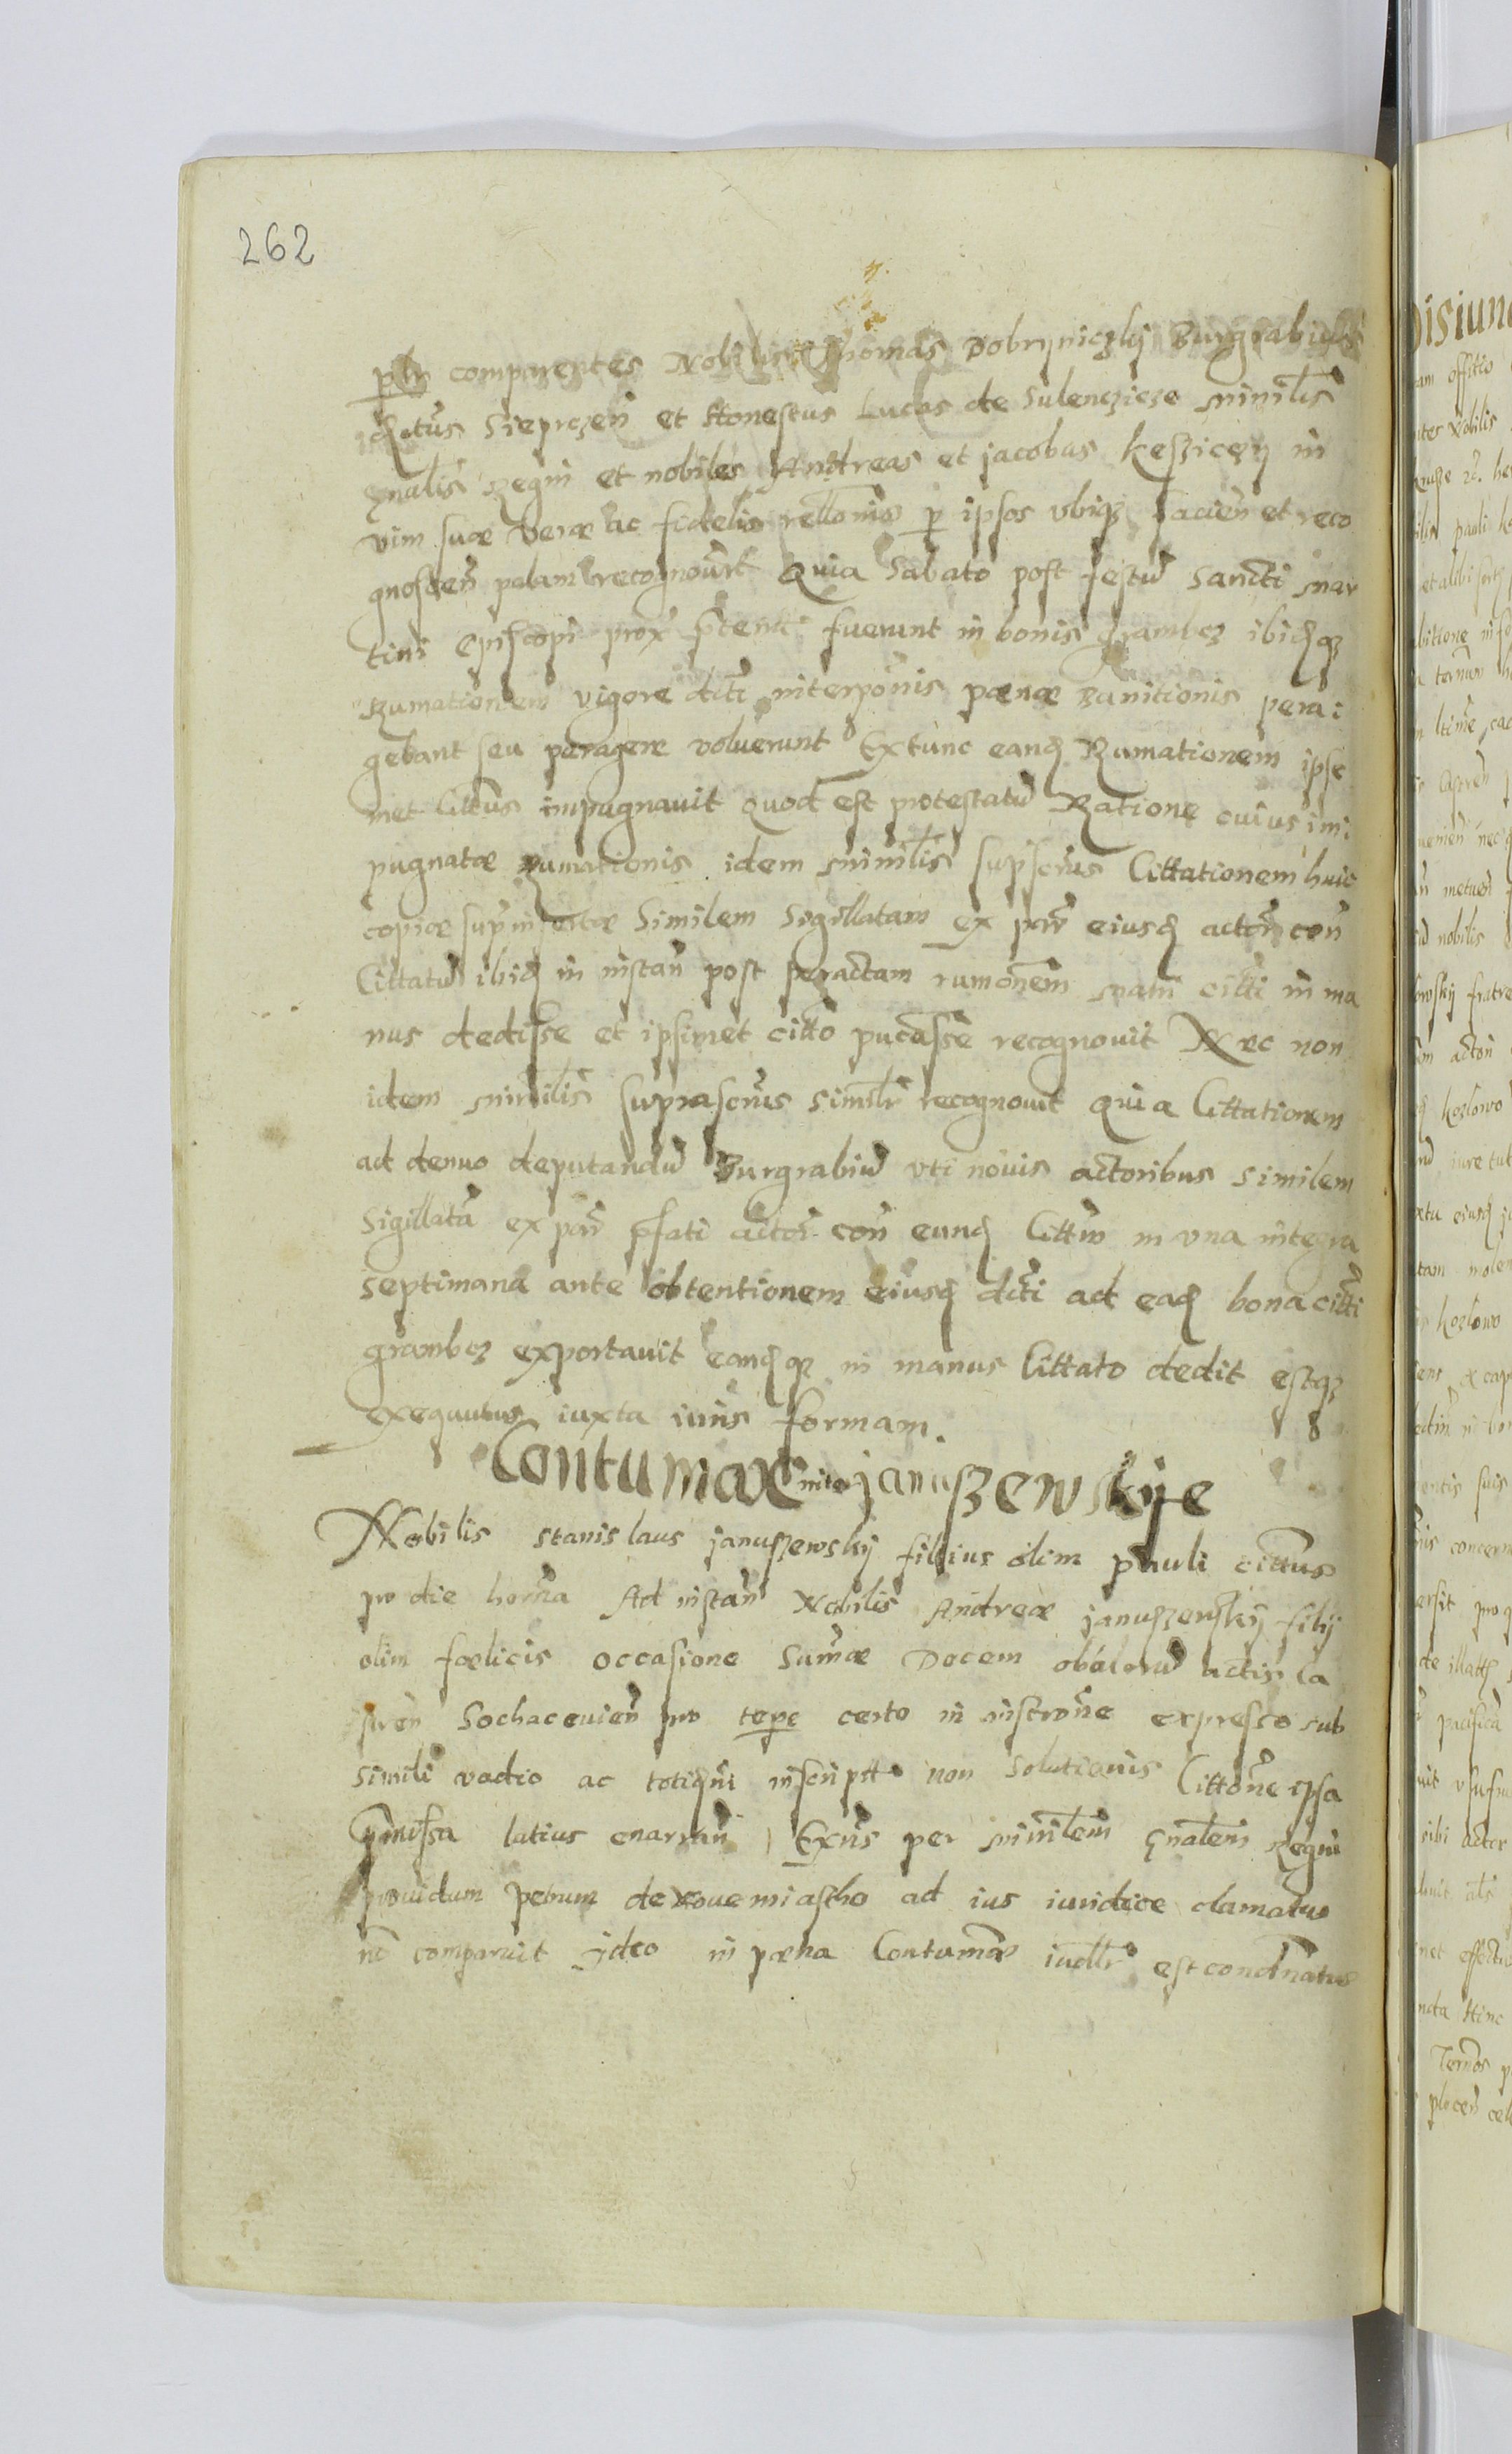 262
comparentes Nobilis Thomas Dobrzyniczkij Burgrabius
Sieprczen̄ et Honestus Lucas de Sulenczicze minilis
gn̄alis Regni et nobiles Andreas et jacobus keszicen in
vim suæ veræ ac fidelis rellonis p ipsos vbiqz facien̄ et reco
gnoscen̄ palam recognoverūt Quia Sabato post festū Sancti Mar
tini Episcopi prox̄ fuerunt in bonis grambez ibidqz
Rumationem vigore dicti pœnæ Banitionis pera
gebant seu peragere voluerunt Extunc eand Rumationem ipse
met Citt̄us impugnavit Quod est protestatū Ratione cuius im
pugnatæ Rumationis idem minilis supscrus Cittationem huic
copiæ sup insertæ Similem Sigillatam ex par̄ eiusd actor̄ con̄
Cittatū ibid in instan̄ post peractam rumōnem citti in ma
nus dedisse et ipsimet citto recognovit Nec non
idem minilis suprascrus similr recognovit quia Cittationem
ad denuo deputandū Burgrabiū vti novis actoribus similem
Sigillatā ex par̄ pfati actor̄ con̄ eund Cittm̄ in vna integra
septimana ante obtentionem eiusd dicti ad ead bona citti
grambez exportavit eandqz in manus Cittato dedit estqz
exequutus iuxta iuris formam.
Contumax inter januszewskije
Nobilis Stanislaus januszewskij filius olim pauli citt̄us
pro die horn̄a Ad instan̄ Nobilis Andreæ januszewskij filij
olim fœlicis occasione Sum̄æ Decem actis ca
stren̄ Sochacevien̄ pro tepe certo in inscrōne expresso sub
simili vadio ac inscript non solutionis Cittōne ipsa
pmissa latius enarran̄ Exn̄s per minilem gn̄alem Regni
providum Petrum de Novemiastho ad ius iuridice clamatus
nō comparuit Ideo in pœna Contumaē iudllr est condēnatus